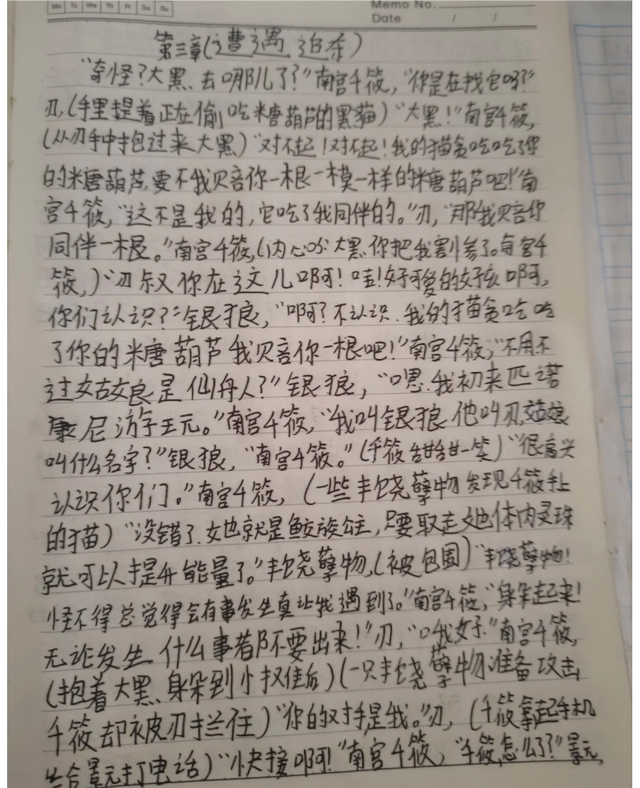 Mo Tu We Th Fr Sa Su
Memo No.
Date / /
第三章(遭遇追杀)
“奇怪?大黑去哪儿了?”南宫千筱,“你是在找它吗?”
刃,(手里提着正在偷吃米糖葫芦的黑猫)“大黑!”南宫千筱,
(从刃手中抱过来大黑)“对不起!对不起!我的猫贪吃吃了你
的米糖葫芦,要不我赔你一根一模一样的米糖葫芦吧!”南
宫千筱,“这不是我的,它吃了我同伴的。”刃,“那我赔你
同伴一根。”南宫千筱,(内心os:大黑你把我害惨了。南宫千
筱,)“刃叔你在这儿啊!哇!好可爱的女孩啊,
你们认识?”银狼,“啊?不认识.我的猫贪吃吃
了你的米糖葫芦我赔你一根吧!”南宫千筱,“不用不
过姑娘是仙舟人?”银狼,“嗯.我初来匹诺
康尼游玩。”南宫千筱,“我叫银狼他叫刃姑娘
叫什么名字?”银狼,“南宫千筱。”(千筱甜甜一笑)“很高兴
认识你们。”南宫千筱,(一些丰饶孽物发现千筱手上
的猫)“没错了.她就是鲛族公主,只要取走她体内灵珠
就可以提升能量了。”丰饶孽物,(被包围)“丰饶孽物!
怪不得总觉得会有事发生真让我遇到了。”南宫千筱,“身躲起来!
无论发生什么事都不要出来!”刃,“哦好”南宫千筱,
(抱着大黑身躲到小权佳后)(一只丰饶孽物准备攻击
千筱却被刃拦住)“你的对手是我。”刃,(千筱拿起手机
给景元打电话)“快接啊!”南宫千筱,“千筱,怎么了?”景元,